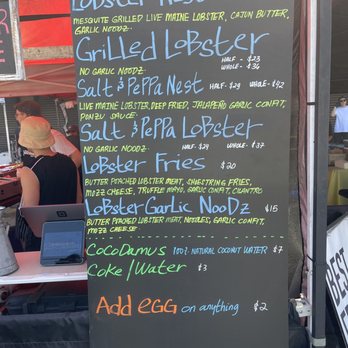 Lobster Nest
MESQUITE GRILLED LIVE MAINE LOBSTER, CAJUN BUTTER,
GARLIC NOODZ
Grilled LobSter
NO GARLIC NOODZ HALF - $23
WHOLE - $36
Salt & PePPa Nest HALF - $29 WHOLE - $42
LIVE MAINE LOBSTER, DEEP FRIED, JALAPEÑO GARLIC CONFIT,
PONZU SAUCE
Salt & PePPa LobSter
NO GARLIC NOODZ HALF - $24 WHOLE - $37
LobSter Fries $20
BUTTER POACHED LOBSTER MEAT, SHOESTRING FRIES,
MOZZ CHEESE, TRUFFLE MAYO, GARLIC CONFIT, CILANTRO
LobSter Garlic NooDz $15
BUTTER POACHED LOBSTER MEAT, NOODLES, GARLIC CONFIT,
MOZZ CHEESE
CoCoDamuS 100% NATURAL COCONUT WATER $7
Coke/Water $3
Add EGG on anything $2
BEST